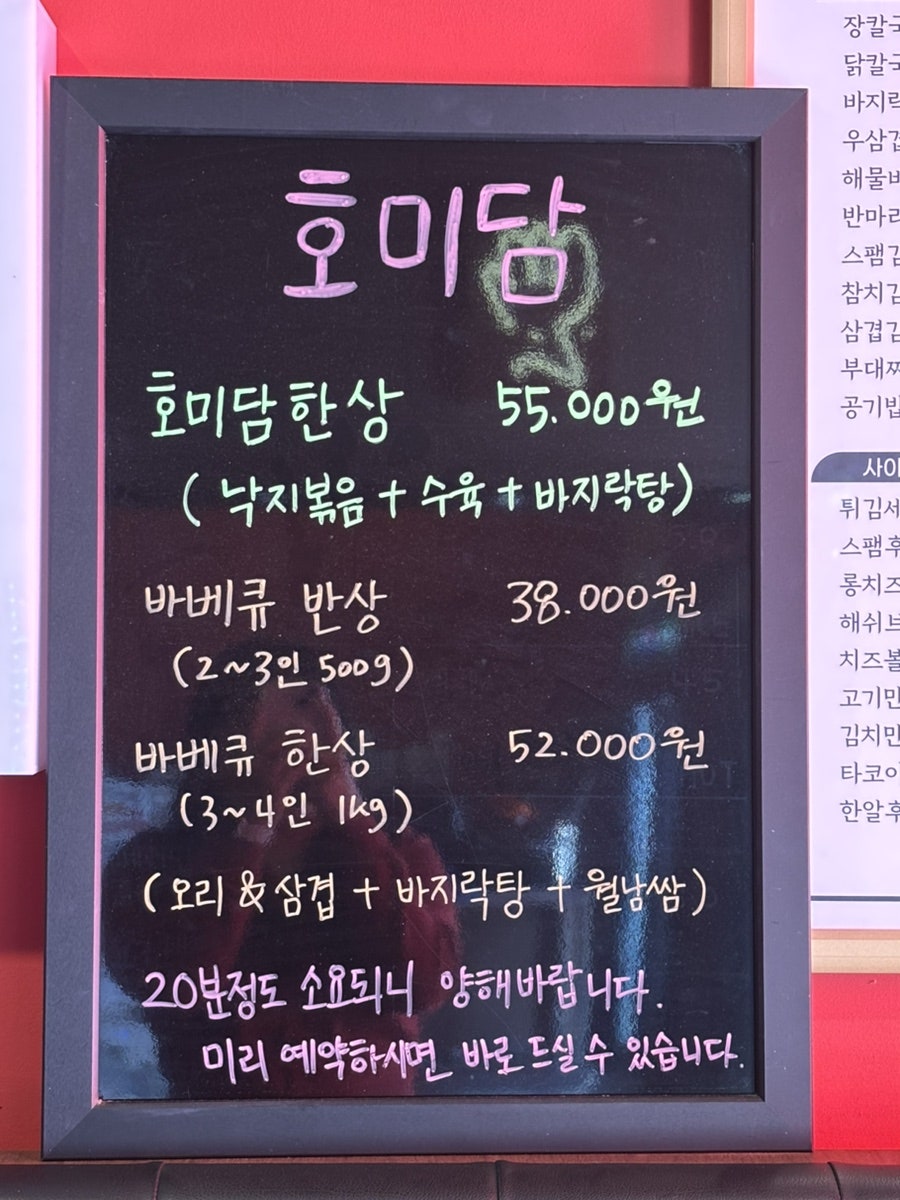 호미담
호미담한상 55.000원
(낙지볶음 + 수육 + 바지락탕)
바베큐 반상 38.000원
(2~3인 500g)
바베큐 한상 52.000원
(3~4인 1kg)
(오리 & 삼겹 + 바지락탕 + 월남쌈)
20분정도 소요되니 양해바랍니다.
미리 예약하시면 바로 드실 수 있습니다.
장칼국
닭칼국
바지락
우삼겹
해물
반마리
스팸김
참치김
삼겹김
부대찌
공기밥
사이
튀김세
스팸후
롱치즈
해쉬브
치즈볼
고기만
김치만
타코야
한알후